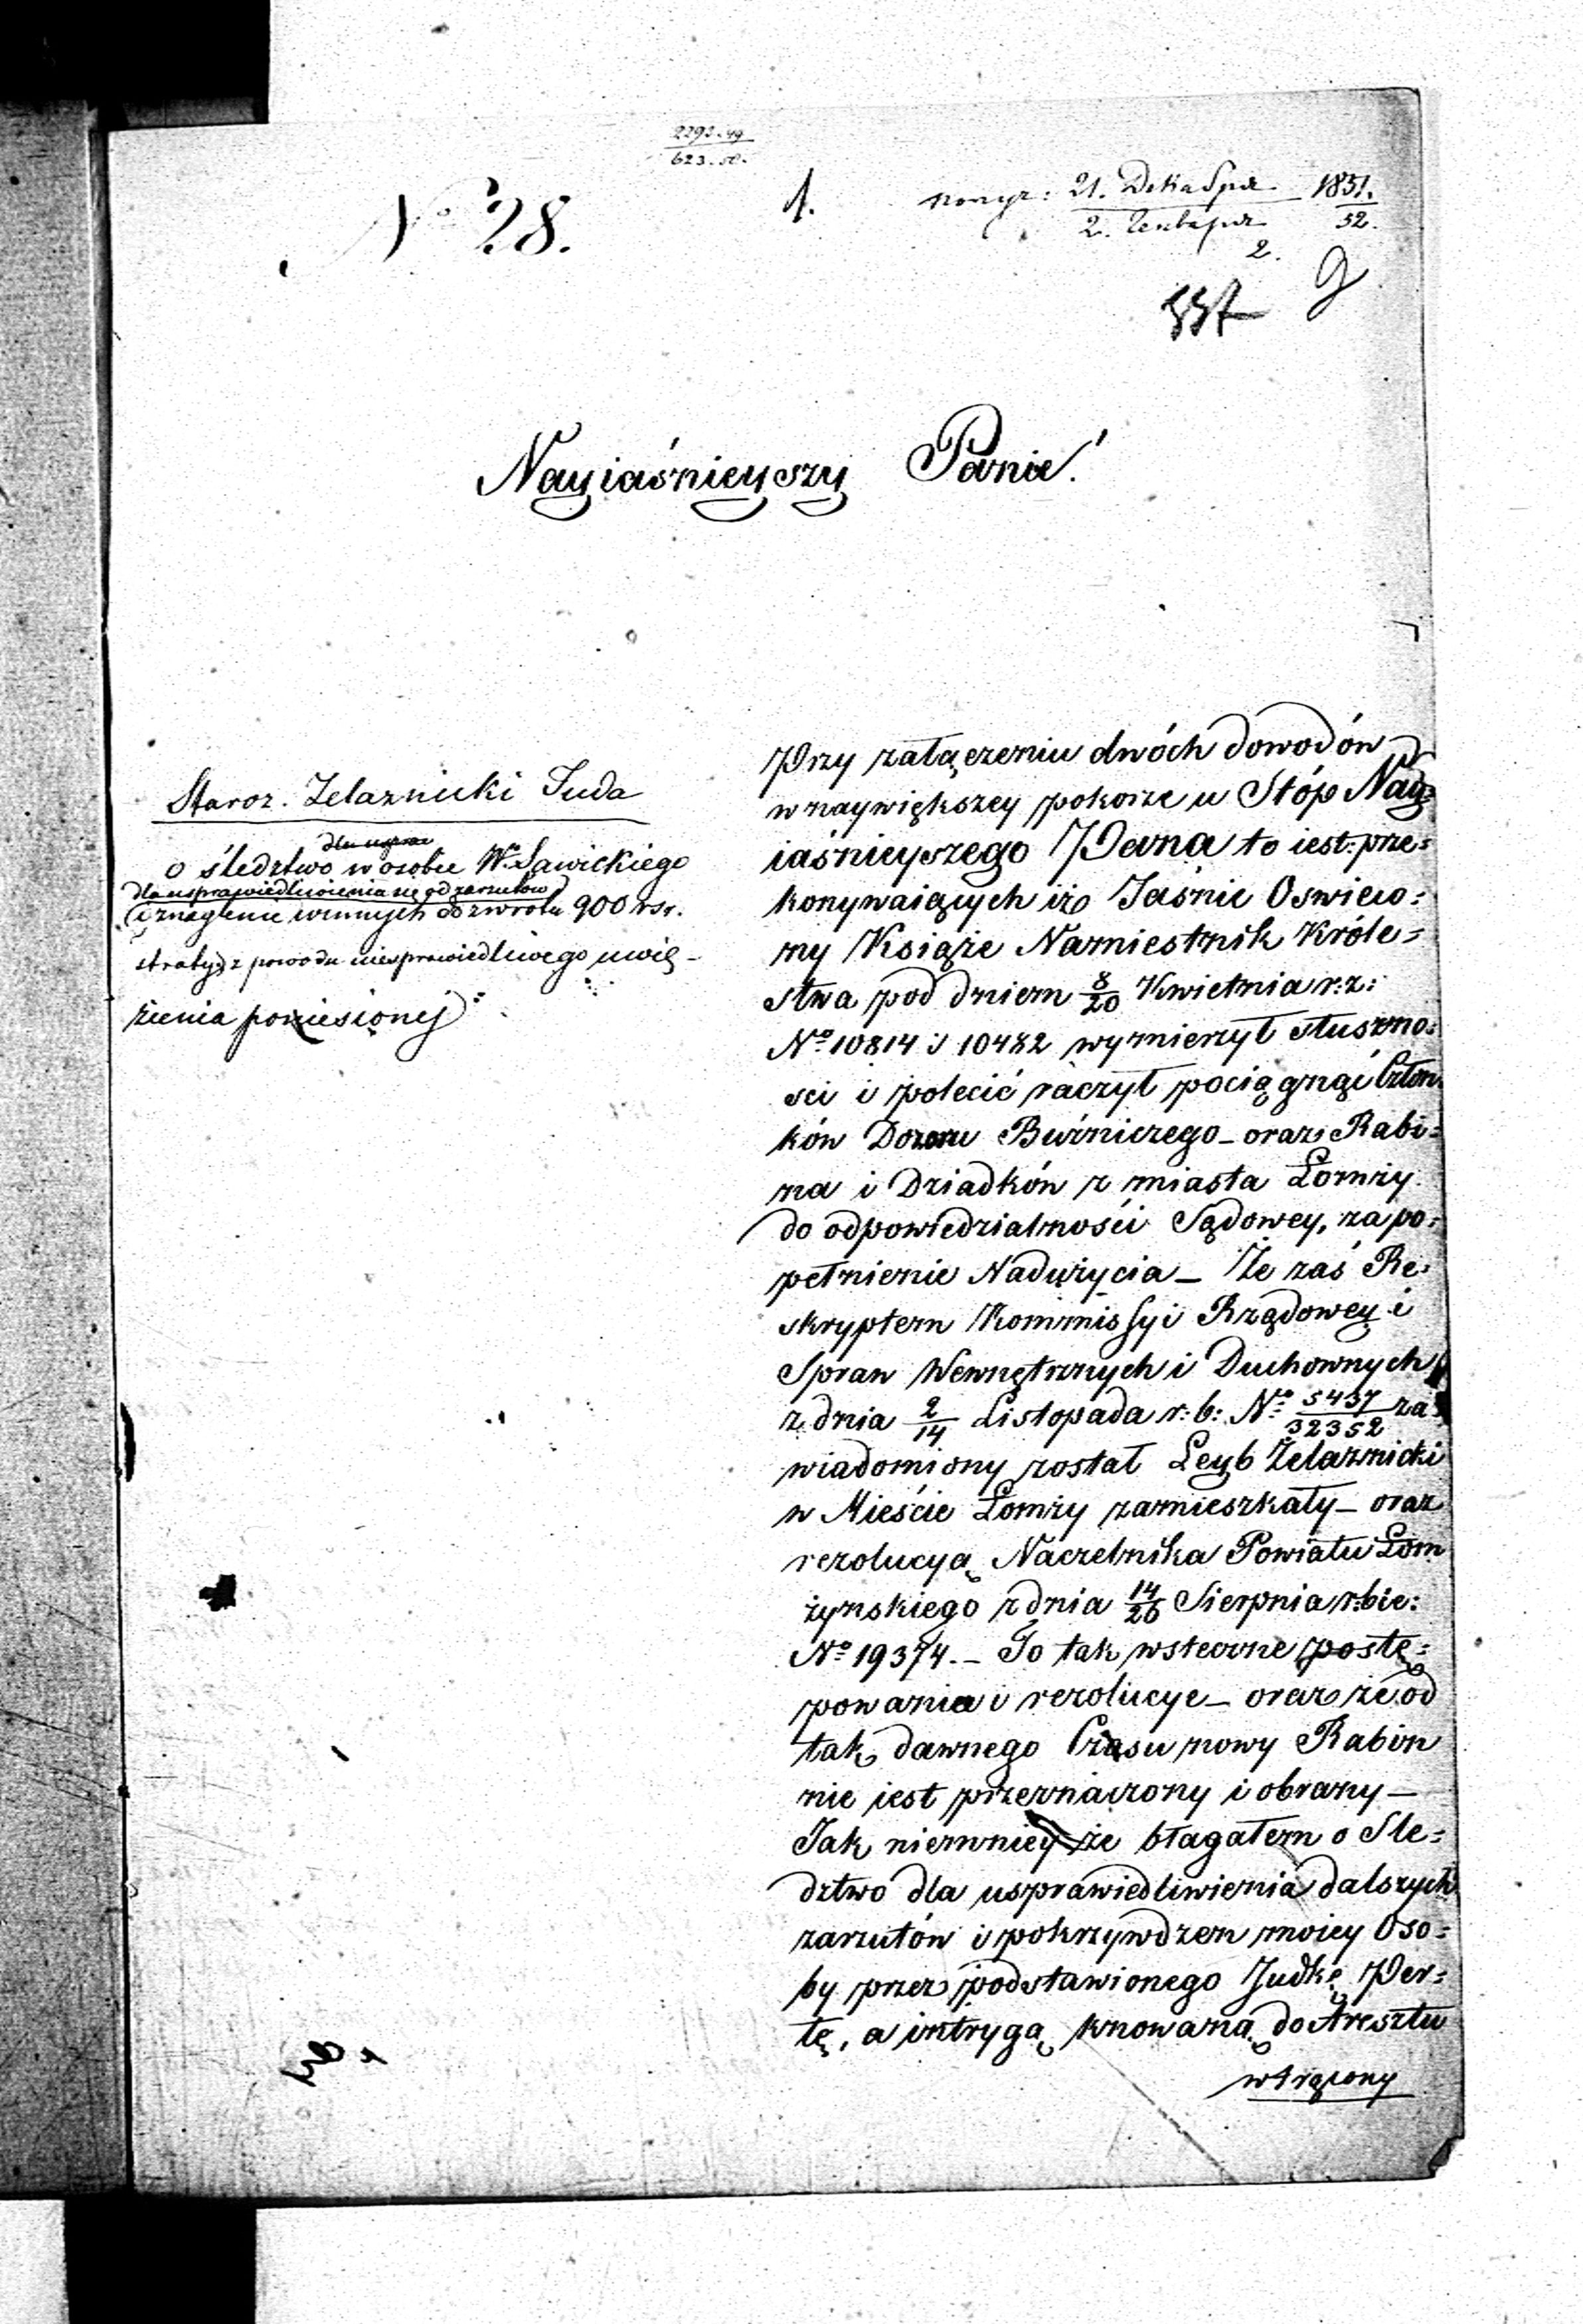 2293.49
623.50.
№ 28.
1.
получ: 21. Декабря 1851.
2. Января 52.
2.
Nayiaśnieyszy Panie!
Staroz. Zelaznicki Juda
dla uspra
o śledztwo w osobie Wo Sawickiego
dla usprawiedliwienia się od zarzutów
i znaglenie winnych do zwrotu 900 rsr.
straty z powodu niesprawiedliwego uwię-
zienia poniesionej
Przy załączeniu dwóch dowodów
w naywiększey pokorze u Stóp Nay=
iaśnieyszego Pana to iest: prze=
konywaiących iż Jaśnie Oswieco=
ny Książe Namiestnik Króle=
stwa pod dniem 8/20 Kwietnia r: z:
No 10814 i 10482 wymierzył słuszno=
sci i polecić raczył pociągnąć Człon=
ków Dozoru Bużniczego – oraz Rabi=
na i Dziadków z miasta Łomży
do odpowiedzialności Sądowey, za po=
pełnienie Nadużycia – Że zaś Re=
skryptem Kommissyi Rządowey i
Spraw Wewnętrznych i Duchownych
z dnia 2/14 Listopada r: b: No 5437/32352 za=
wiadomiony został Leyb Żelaznicki
w Mieście Łomży zamieszkały – oraz
rezolucyą Naczelnika Powiatu Łom
żynskiego z dnia 14/26 Sierpnia r: bie:
No 19374. – To tak wsteczne postę=
powania i rezolucye – oraz że od
tak dawnego Czasu nowy Rabin
nie iest przeznaczony i obrany –
Jak niemniey że błagałem o Sle=
dztwo dla usprawiedliwienia dalszych
zarzutów i pokrzywdzen moiey Oso=
by przez podstawionego Judkę Per=
łę, a intrygą knowaną do Aresztu
wtrącony